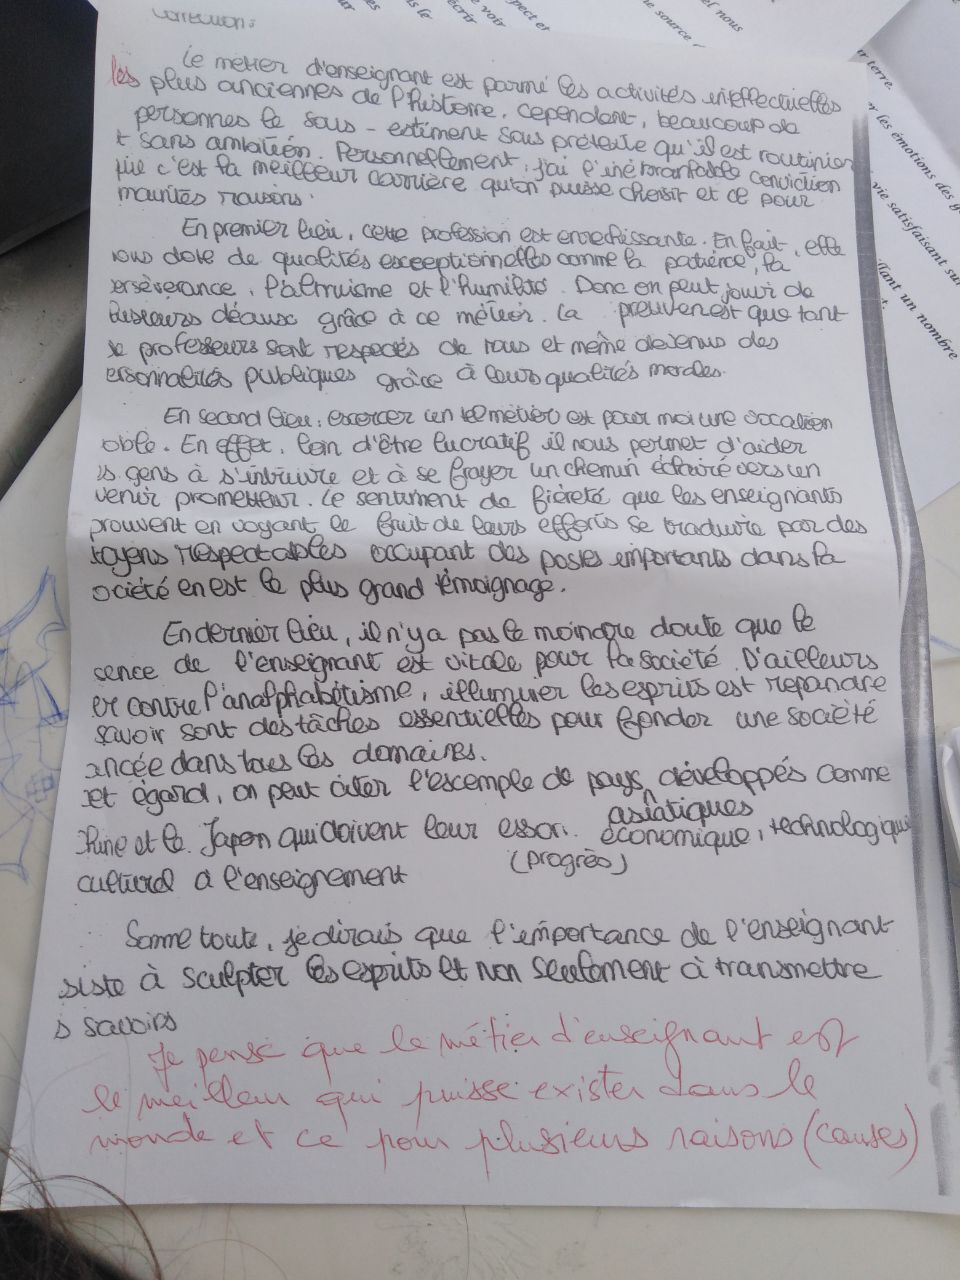 Correction:
Le métier d'enseignant est parmi les activités intellectuelles
les plus anciennes de l'histoire, cependant, beaucoup de
personnes le sous-estiment sous prétexte qu'il est routinier
t sans ambition. Personnellement, j'ai l'inébranlable conviction
que c'est la meilleur carrière qu'on puisse choisir et ce pour
maintes raisons.
En premier lieu, cette profession est enrechissante. En fait, elle
nous dote de qualités exceptionnelles comme la patience, la
ersévérance, l'altruisme et l'humilité. Donc on peut jouir de
plusieurs idéaux grâce à ce métier. La preuve n'est que tant
de professeurs sont respectés de tous et même devenus des
ersonnalités publiques grâce à leurs qualités morales.
En second lieu, exercer un tel métier est pour moi une vocation
oble. En effet, loin d'être lucratif il nous permet d'aider
s gens à s'intruire et à se frayer un chemin éclairé vers un
venir prometteur. Le sentiment de fièreté que les enseignants
prouvent en voyant le fruit de leurs efforts se traduire par des
toyens respectables occupant des postes importants dans la
ociété en est le plus grand témoignage.
En dernier lieu, il n'y a pas le moindre doute que le
sence de l'enseignant est vitale pour la société. D'ailleurs
er contre l'analphabétisme, illuminer les esprits est repandre
savoir sont des tâches essentielles pour fonder une société
ancée dans tous les domaines.
cet égard, on peut citer l'exemple de pays développés comme
asiatiques
Chine et le Japon qui doivent leur essor économique, technologique
(progrès)
culturel a l'enseignement
Somme toute, je dirais que l'importance de l'enseignant
siste à sculpter les esprits et non seulement à transmettre
s savoirs
Je pense que le métier d'enseignant est
le meilleur qui puisse exister dans le
monde et ce pour plusieurs raisons (causes)